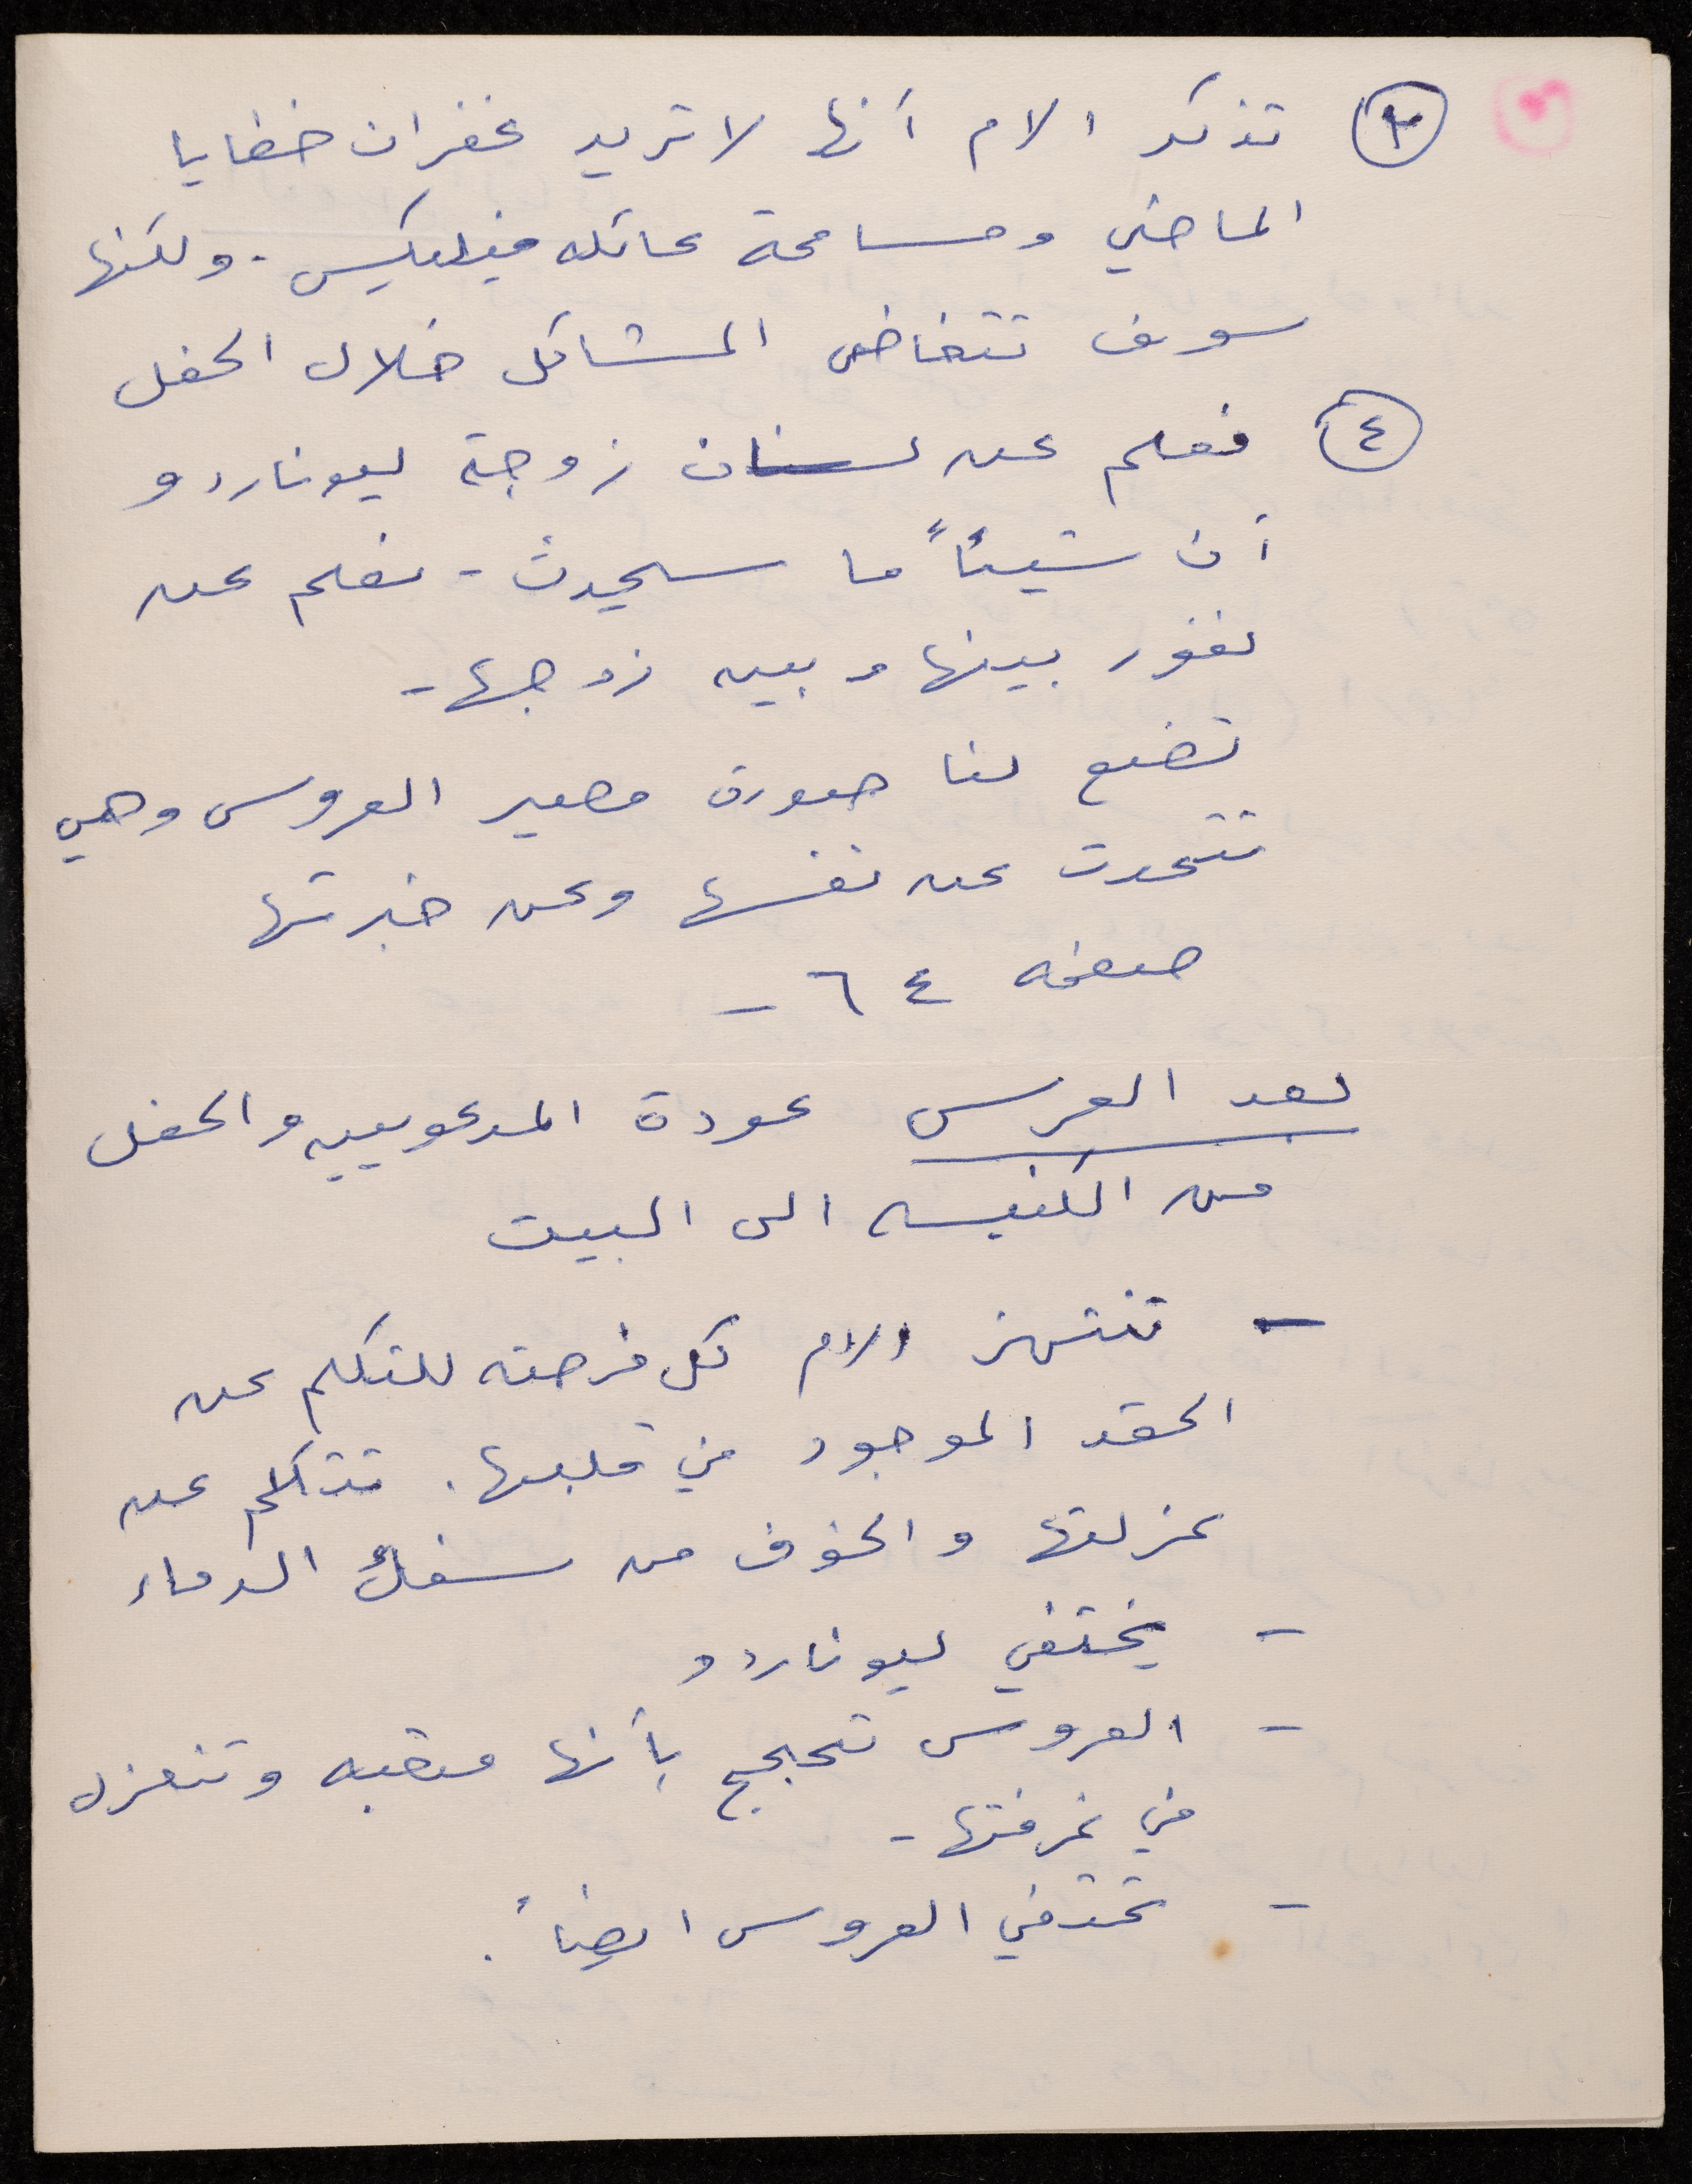 ٣ تذكد الام أنها لا تريد غفران خطايا
الماضي ومسامحة عائله فيليكس. ولكنها
سوف تتغاضى المشاكل خلال الحفل
٤ نعلم عن لسان زوجة ليوناردو
أن شيئاً ما سيحدث - نعلم عن
نفور بينها وبين زوجها -
تضع لنا صورة مصير العروس وهي
تتحدث عن نفسها وعن خبرتها
صفحه ٦٤ -
بعد العرس عودة المدعويين والحفل
من الكنيسه الى البيت
- تنتهز الام كل فرصه للتكلم عن
الحقد الموجود في قلبها. تتكلم عن
عزلتها والخوف من سفك الدماء
- يختفي ليوناردو
- العروس تحجج بأنها متعبه وتنعزل
في غرفتها -
- تختفي العروس ايضاً.